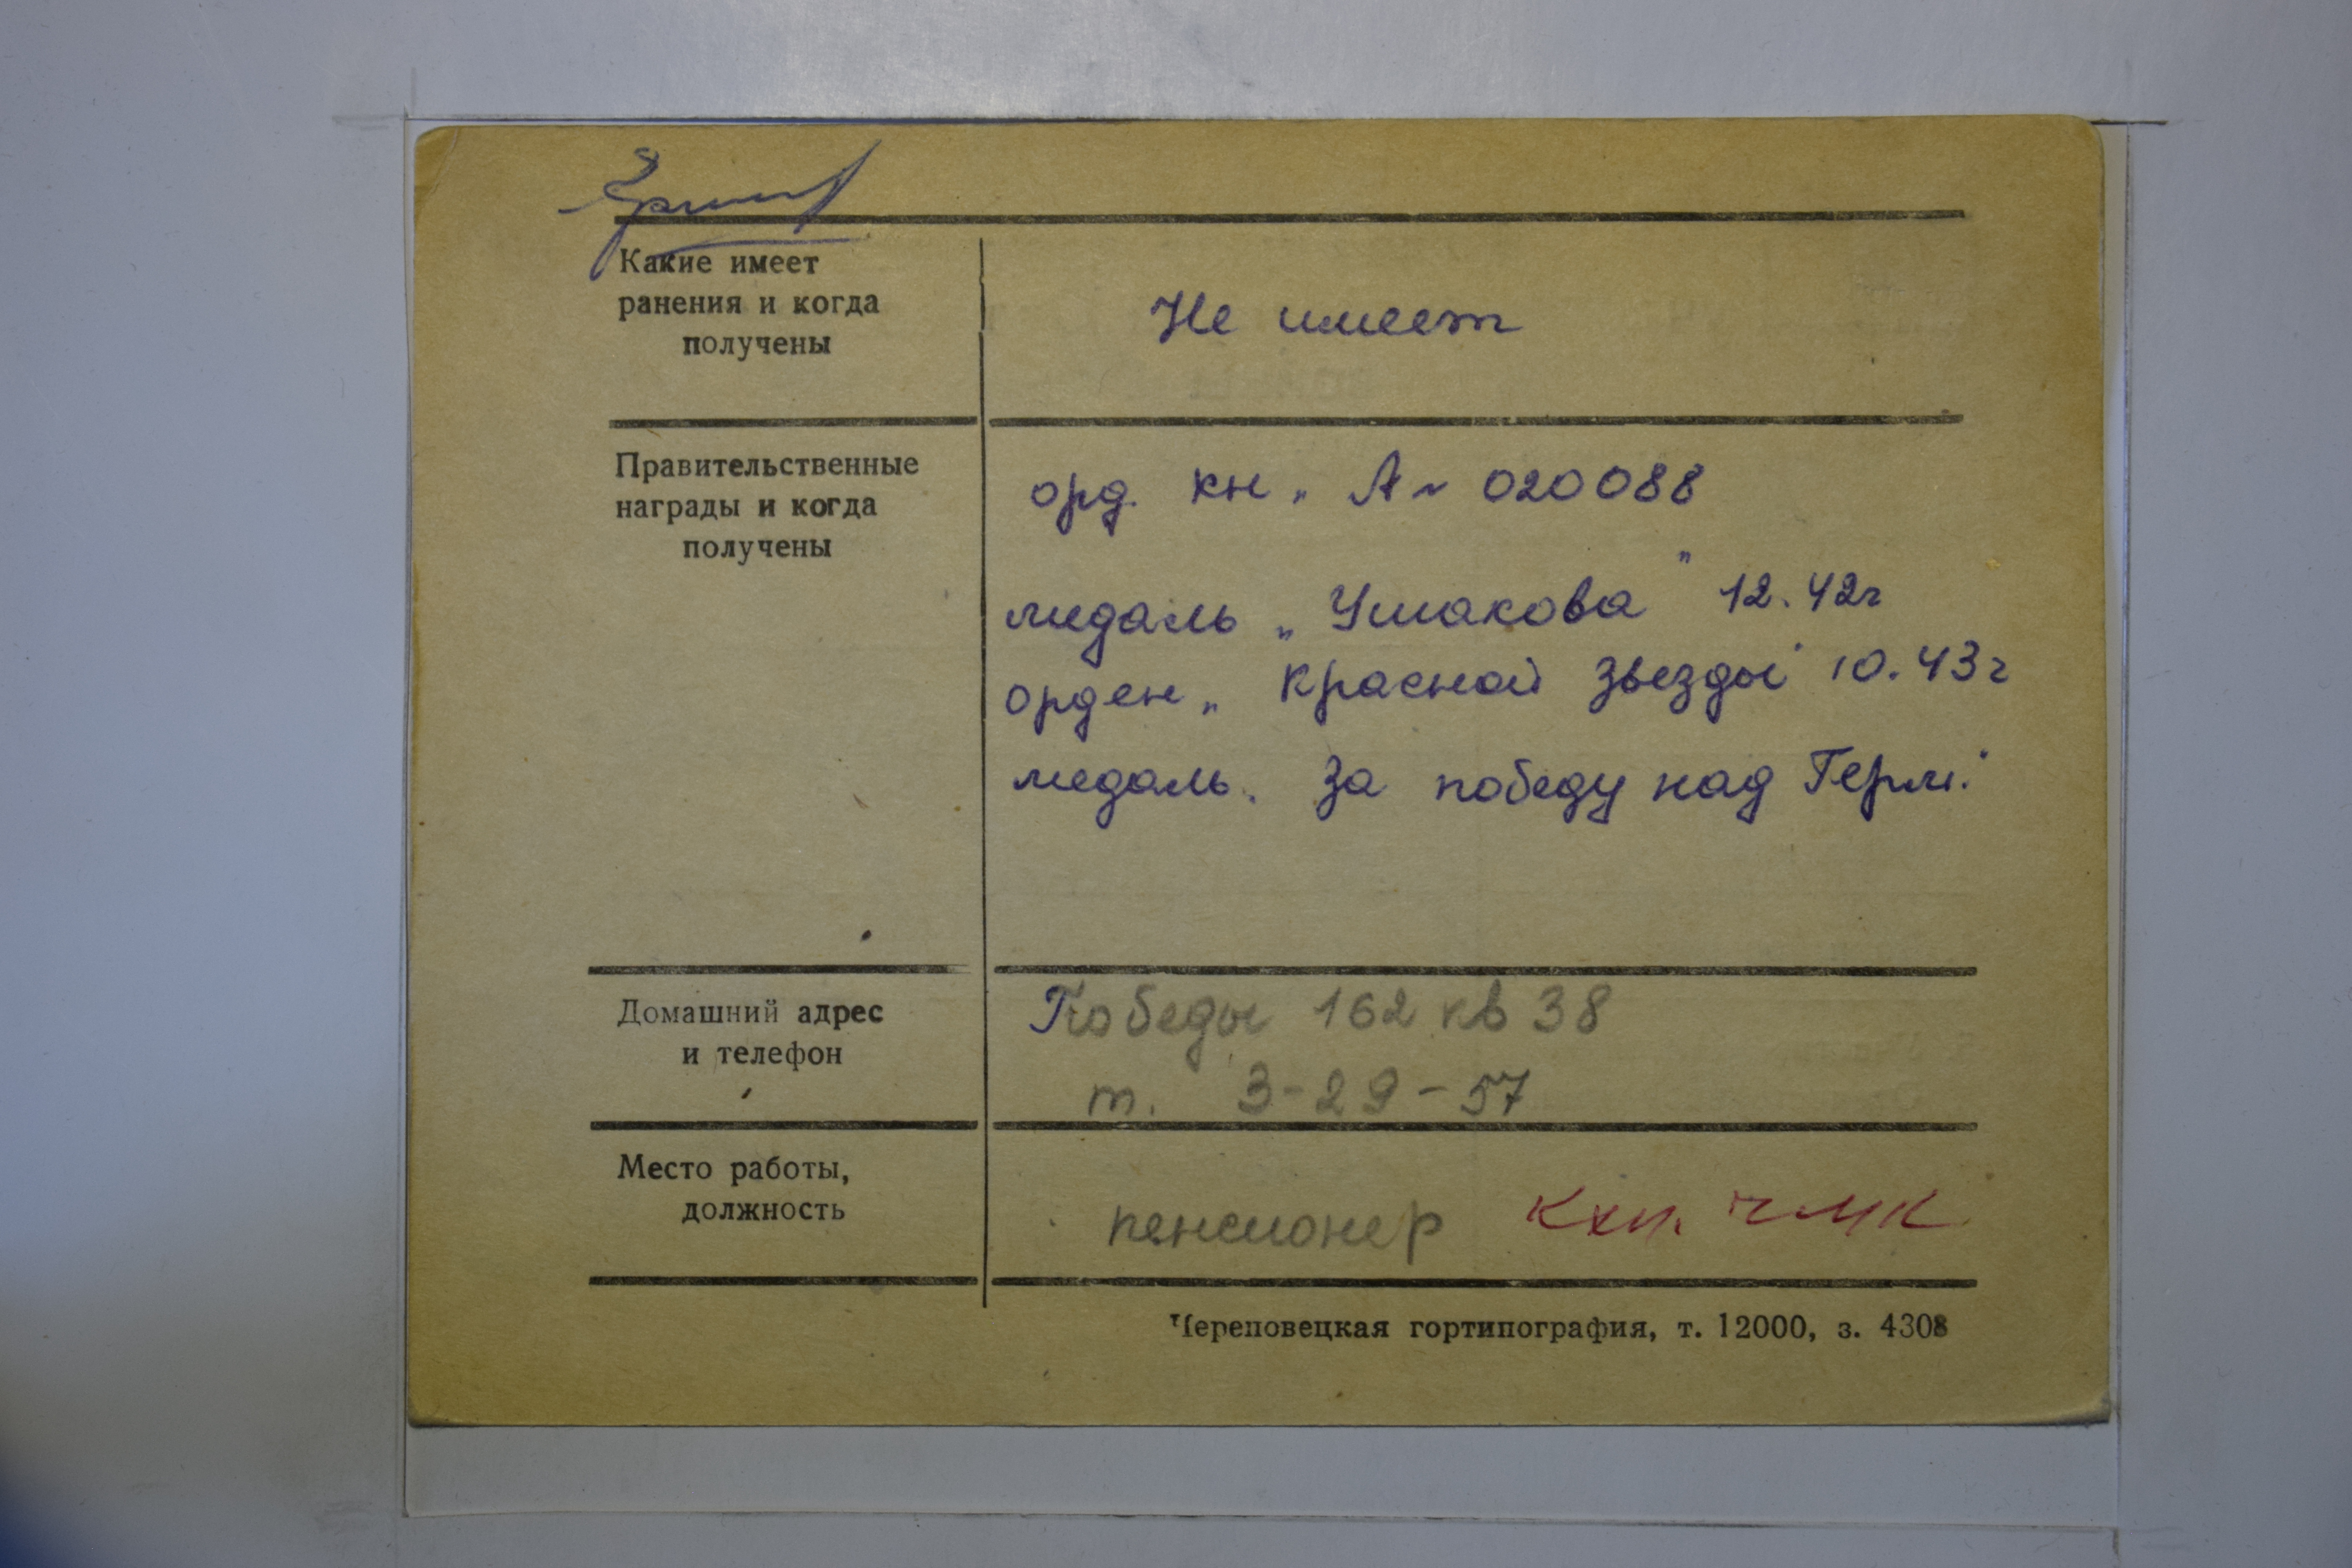 Какие имеет
ранения и когда
получены
Не имеет
Правительственные
награды и когда
получены
орд. кн. А № 020088
медаль „Ушакова" 12.42г
орден „Красной Звезды" 10.43г
медаль „За победу над Герм."
Домашний адрес
и телефон
Победы 162 кв 38
т. 3-29-57
Место работы,
должность
пенсионер кхп. чмк
Череповецкая гортипография, т. 12000, з. 4308